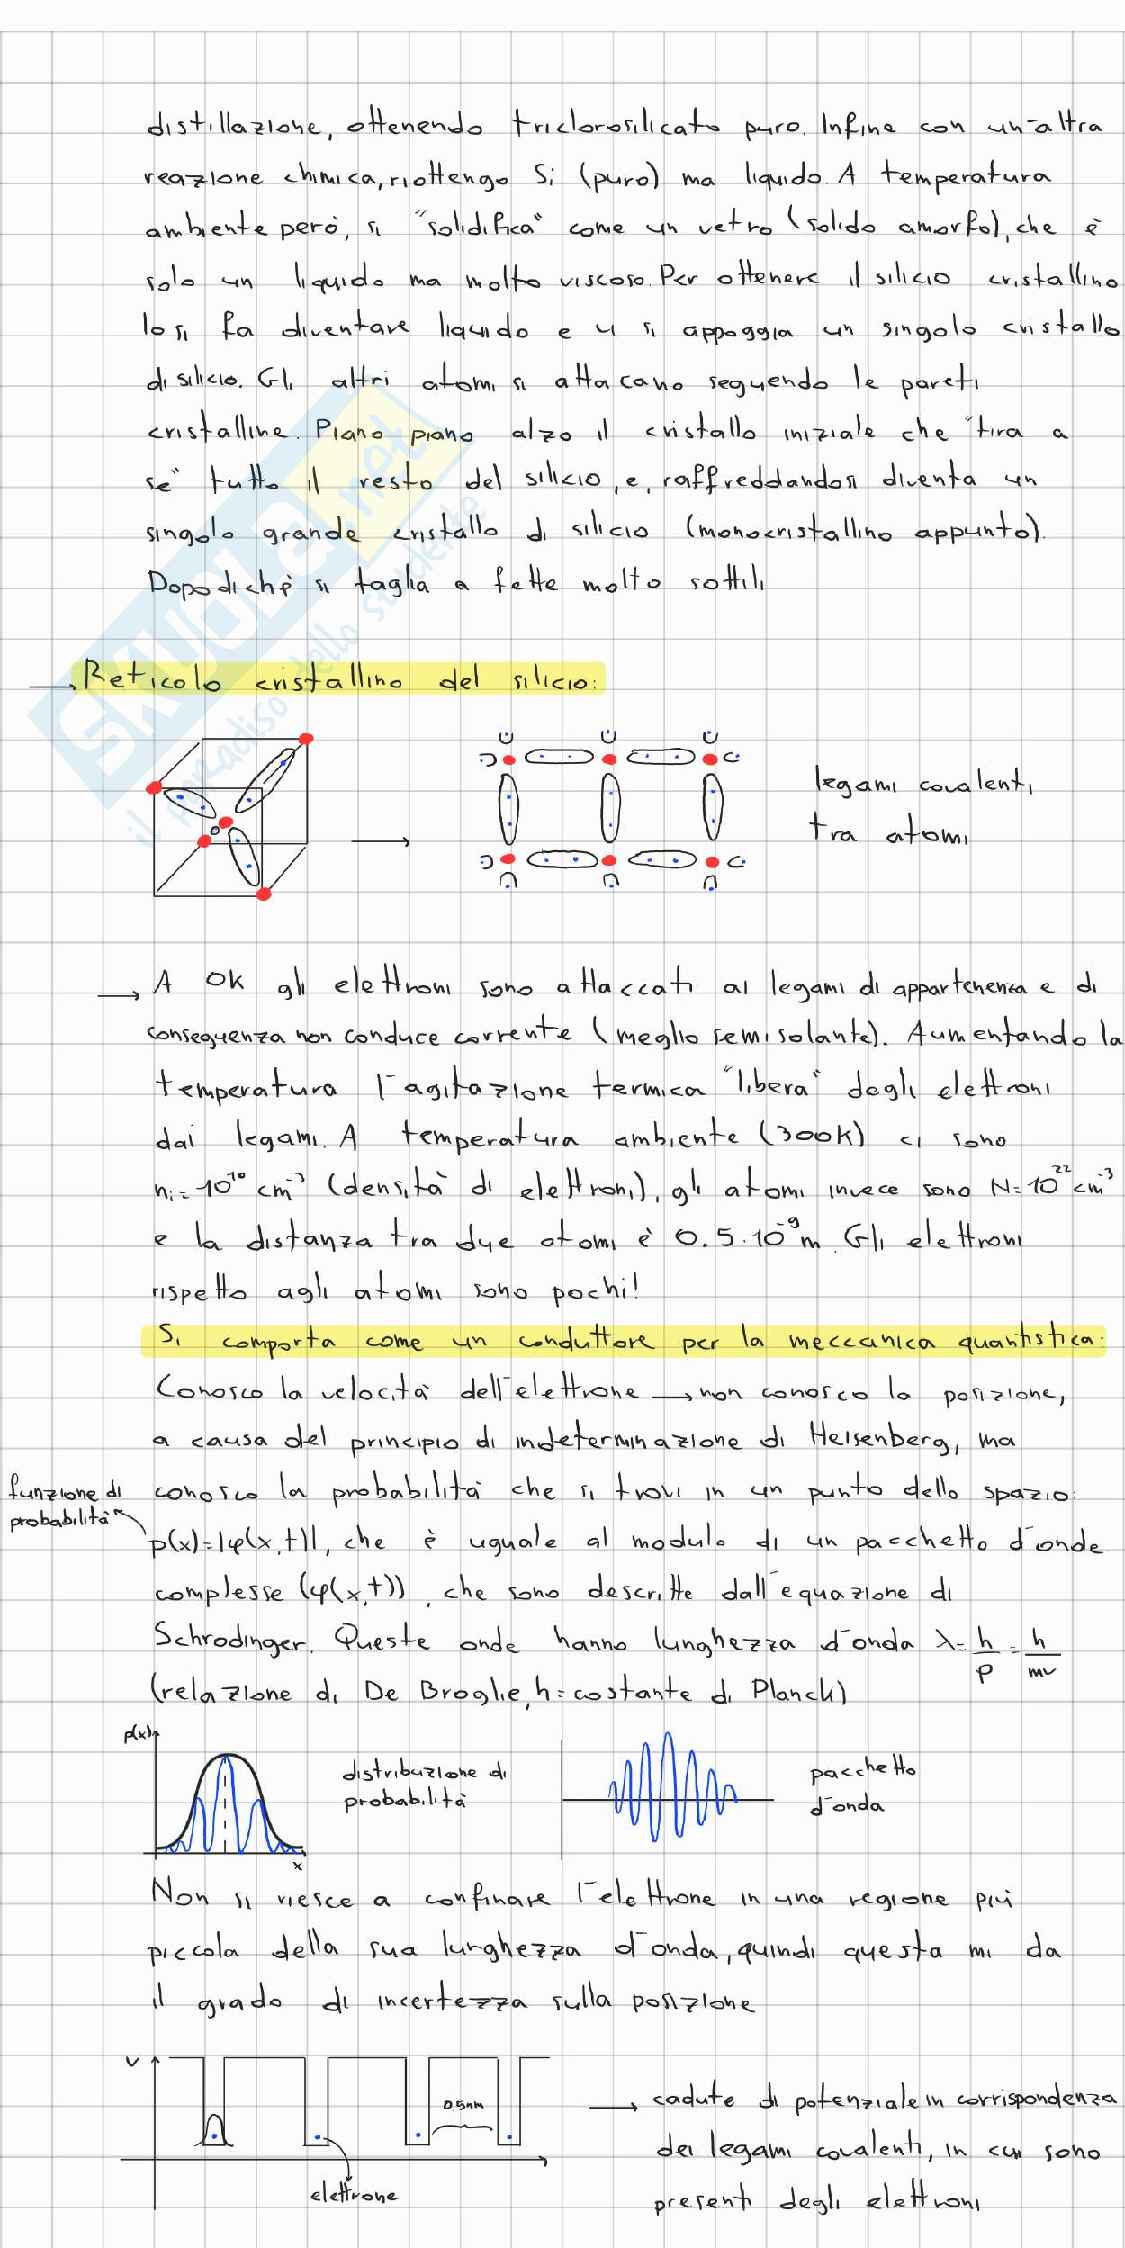 distillazione, ottenendo triclorosilicato puro. Infine con un'altra
reazione chimica, riottengo Si (puro) ma liquido. A temperatura
ambiente però, si "solidifica" come un vetro (solido amorfo), che è
solo un liquido ma molto viscoso. Per ottenere il silicio cristallino
lo si fa diventare liquido e vi si appoggia un singolo cristallo
di silicio. Gli altri atomi si attacano seguendo le pareti
cristalline. Piano piano alzo il cristallo iniziale che "tira a
se" tutto il resto del silicio, e, raffreddandosi diventa un
singolo grande cristallo di silicio (monocristallino appunto).
Dopodiché si taglia a fette molto sottili
→ Reticolo cristallino del silicio:
legami covalenti
tra atomi
→ A 0K gli elettroni sono attaccati ai legami di appartenenza e di
conseguenza non conduce corrente (meglio semisolante). Aumentando la
temperatura l'agitazione termica "libera" degli elettroni
dai legami. A temperatura ambiente (300K) ci sono
ni = 10¹⁰ cm⁻³ (densità di elettroni), gli atomi invece sono N = 10²² cm⁻³
e la distanza tra due atomi è 0.5·10⁻⁹m. Gli elettroni
rispetto agli atomi sono pochi!
Si comporta come un conduttore per la meccanica quantistica:
Conosco la velocità dell'elettrone → non conosco la posizione,
a causa del principio di indeterminazione di Heisenberg, ma
conosco la probabilità che si trovi in un punto dello spazio:
funzione di
probabilità
p(x)=|φ(x,t)|, che è uguale al modulo di un pacchetto d'onde
complesse (φ(x,t)), che sono descritte dall'equazione di
Schrodinger. Queste onde hanno lunghezza d'onda λ = h/p = h/mv
(relazione di De Broglie, h = costante di Planck)
p(x)
distribuzione di
probabilità
x
pacchetto
d'onda
Non si riesce a confinare l'elettrone in una regione più
piccola della sua lunghezza d'onda, quindi questa mi da
il grado di incertezza sulla posizione
V
0.5nm
elettrone
→ cadute di potenziale in corrispondenza
dei legami covalenti, in cui sono
presenti degli elettroni
SKUOLA.net
il paradiso dello studente